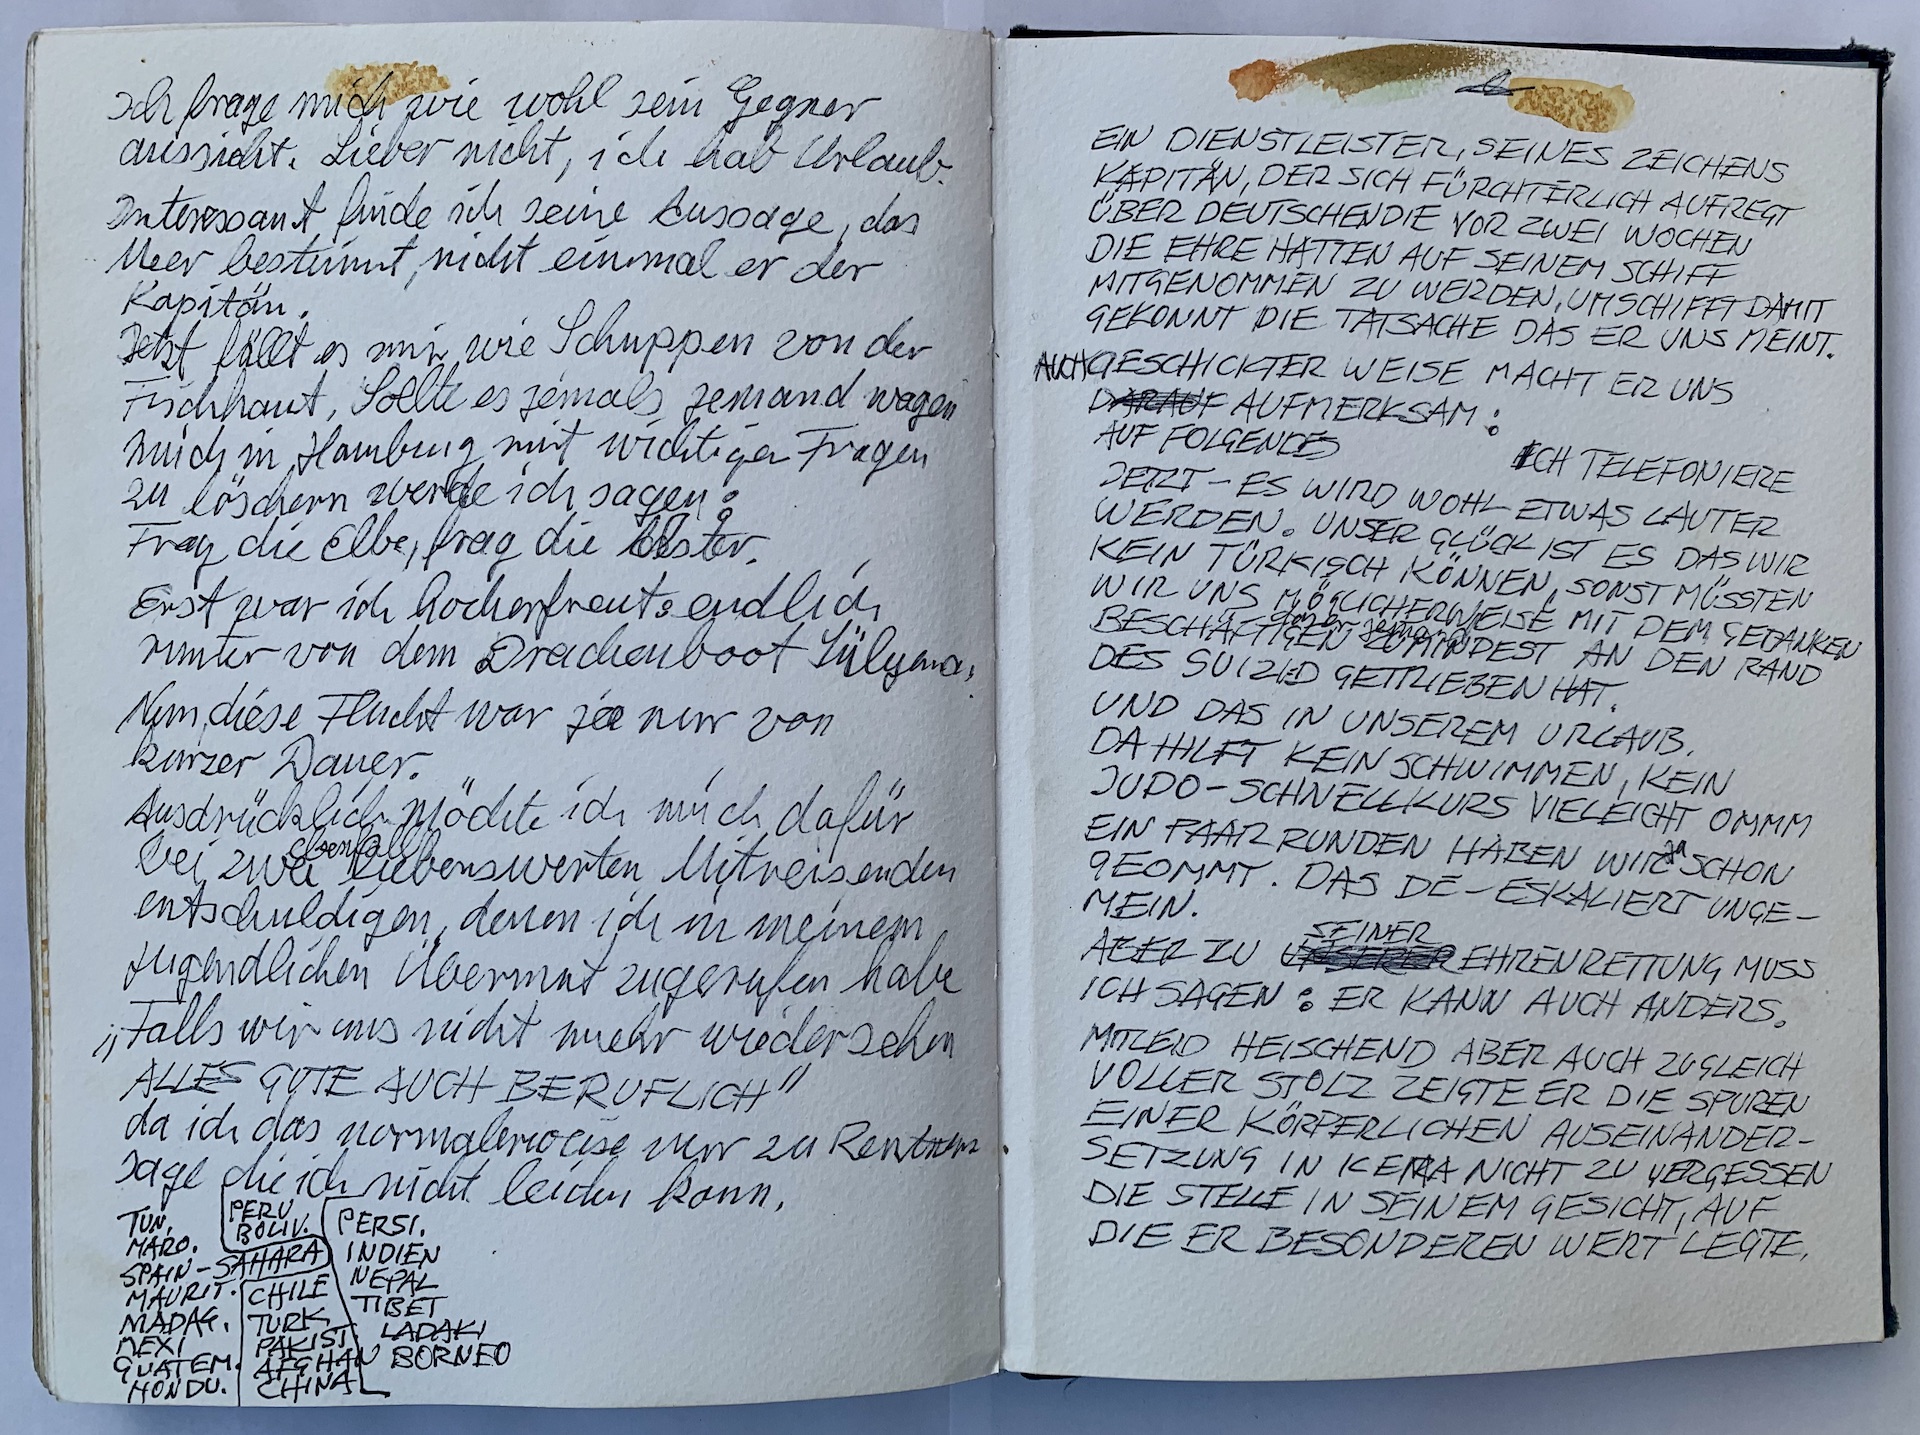 Ich frage mich wie wohl sein Gegner
aussieht. Lieber nicht, ich hab Urlaub.
Interessant finde ich seine Aussage, das
Meer bestimmt, nicht einmal er der
Kapitän.
Jetzt fällt es mir wie Schuppen von der
Fischhaut, Sollte es jemals jemand wagen
mich in Hamburg mit wichtigen Fragen
zu löchern werde ich sagen:
Frag die Elbe, frag die Alster.
Erst war ich hocherfreut: endlich
runter von dem Drachenboot Sülyma.
Nun, diese Flucht war ja nur von
kurzer Dauer.
Ausdrücklich möchte ich mich dafür
ebenfalls
bei zwei liebenswerten Mitreisenden
entschuldigen, denen ich in meinem
jugendlichen Übermut zugerufen habe
„Falls wir uns nicht mehr wiedersehen
ALLES GUTE AUCH BERUFLICH"
da ich das normalerweise nur zu Rentnern
sage die ich nicht leiden kann.
TUN.
MARO.
SPAIN - SAHARA
MAURIT.
MADAG.
MEXI
GUATEM.
HONDU.
PERU
BOLIV.
CHILE
TURK.
PAKIST.
AFGHAN
CHINA
PERSI.
INDIEN
NEPAL
TIBET
LADAKI
BORNEO
EIN DIENSTLEISTER, SEINES ZEICHENS
KAPITÄN, DER SICH FÜRCHTERLICH AUFREGT
ÜBER DEUTSCHE DIE VOR ZWEI WOCHEN
DIE EHRE HATTEN AUF SEINEM SCHIFF
MITGENOMMEN ZU WERDEN, UMSCHIFFT DAMIT
GEKONNT DIE TATSACHE DAS ER UNS MEINT.
AUCH GESCHICKTER WEISE MACHT ER UNS
DARAUF AUFMERKSAM:
AUF FOLGENDES
ICH TELEFONIERE
JETZT - ES WIRD WOHL ETWAS LAUTER
WERDEN. UNSER GLÜCK IST ES DAS WIR
KEIN TÜRKISCH KÖNNEN, SONST MÜSSTEN
WIR UNS MÖGLICHERWEISE MIT DEM GEDANKEN
BESCHÄFTIGEN ZUMINDEST AN DEN RAND
DES SUIZID GETRIEBEN HAT.
UND DAS IN UNSEREM URLAUB.
DA HILFT KEIN SCHWIMMEN, KEIN
JUDO-SCHNELLKURS VIELEICHT OMMM
EIN PAAR RUNDEN HABEN WIR JA SCHON
GEOMMT. DAS DE-ESKALIERT UNGE-
MEIN.
SEINER
ABER ZU UNSERER EHRENRETTUNG MUSS
ICH SAGEN: ER KANN AUCH ANDERS.
MITLEID HEISCHEND ABER AUCH ZUGLEICH
VOLLER STOLZ ZEIGTE ER DIE SPUREN
EINER KÖRPERLICHEN AUSEINANDER-
SETZUNG IN NICHT ZU VERGESSEN
DIE STELLE IN SEINEM GESICHT, AUF
DIE ER BESONDEREN WERT LEGTE.